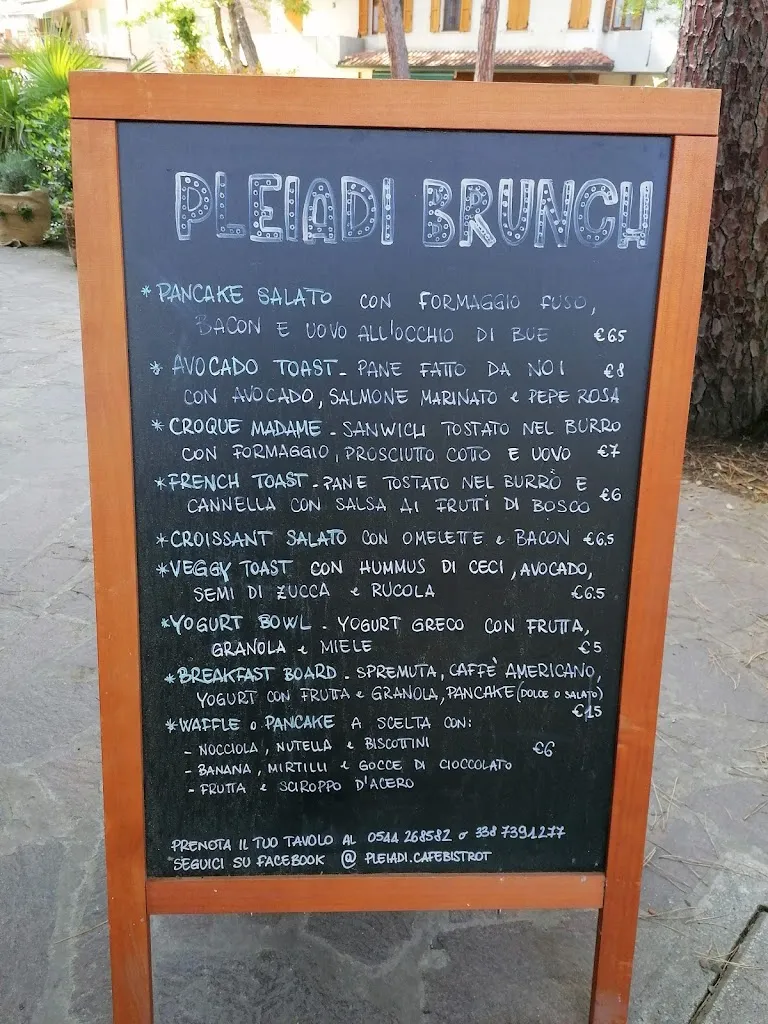 PLEIADI BRUNCH
* PANCAKE SALATO CON FORMAGGIO FUSO,
BACON E UOVO ALL'OCCHIO DI BUE €6.5
* AVOCADO TOAST - PANE FATTO DA NOI €8
CON AVOCADO, SALMONE MARINATO e PEPE ROSA
* CROQUE MADAME - SANWICH TOSTATO NEL BURRO
CON FORMAGGIO, PROSCIUTTO COTTO E UOVO €7
* FRENCH TOAST - PANE TOSTATO NEL BURRO E
CANNELLA CON SALSA AI FRUTTI DI BOSCO €6
* CROISSANT SALATO CON OMELETTE e BACON €6,5
* VEGGY TOAST CON HUMMUS DI CECI, AVOCADO,
SEMI DI ZUCCA e RUCOLA €6.5
* YOGURT BOWL - YOGURT GRECO CON FRUTTA,
GRANOLA e MIELE €5
* BREAKFAST BOARD - SPREMUTA, CAFFÈ AMERICANO,
YOGURT CON FRUTTA e GRANOLA, PANCAKE (DOLCE O SALATO)
€15
* WAFFLE o PANCAKE A SCELTA CON:
- NOCCIOLA, NUTELLA e BISCOTTINI €6
- BANANA, MIRTILLI e GOCCE DI CIOCCOLATO
- FRUTTA e SCIROPPO D'ACERO
PRENOTA IL TUO TAVOLO AL 0544 268582 o 338 7391277
*SEGUICI SU FACEBOOK @ PLEIADI.CAFEBISTROT